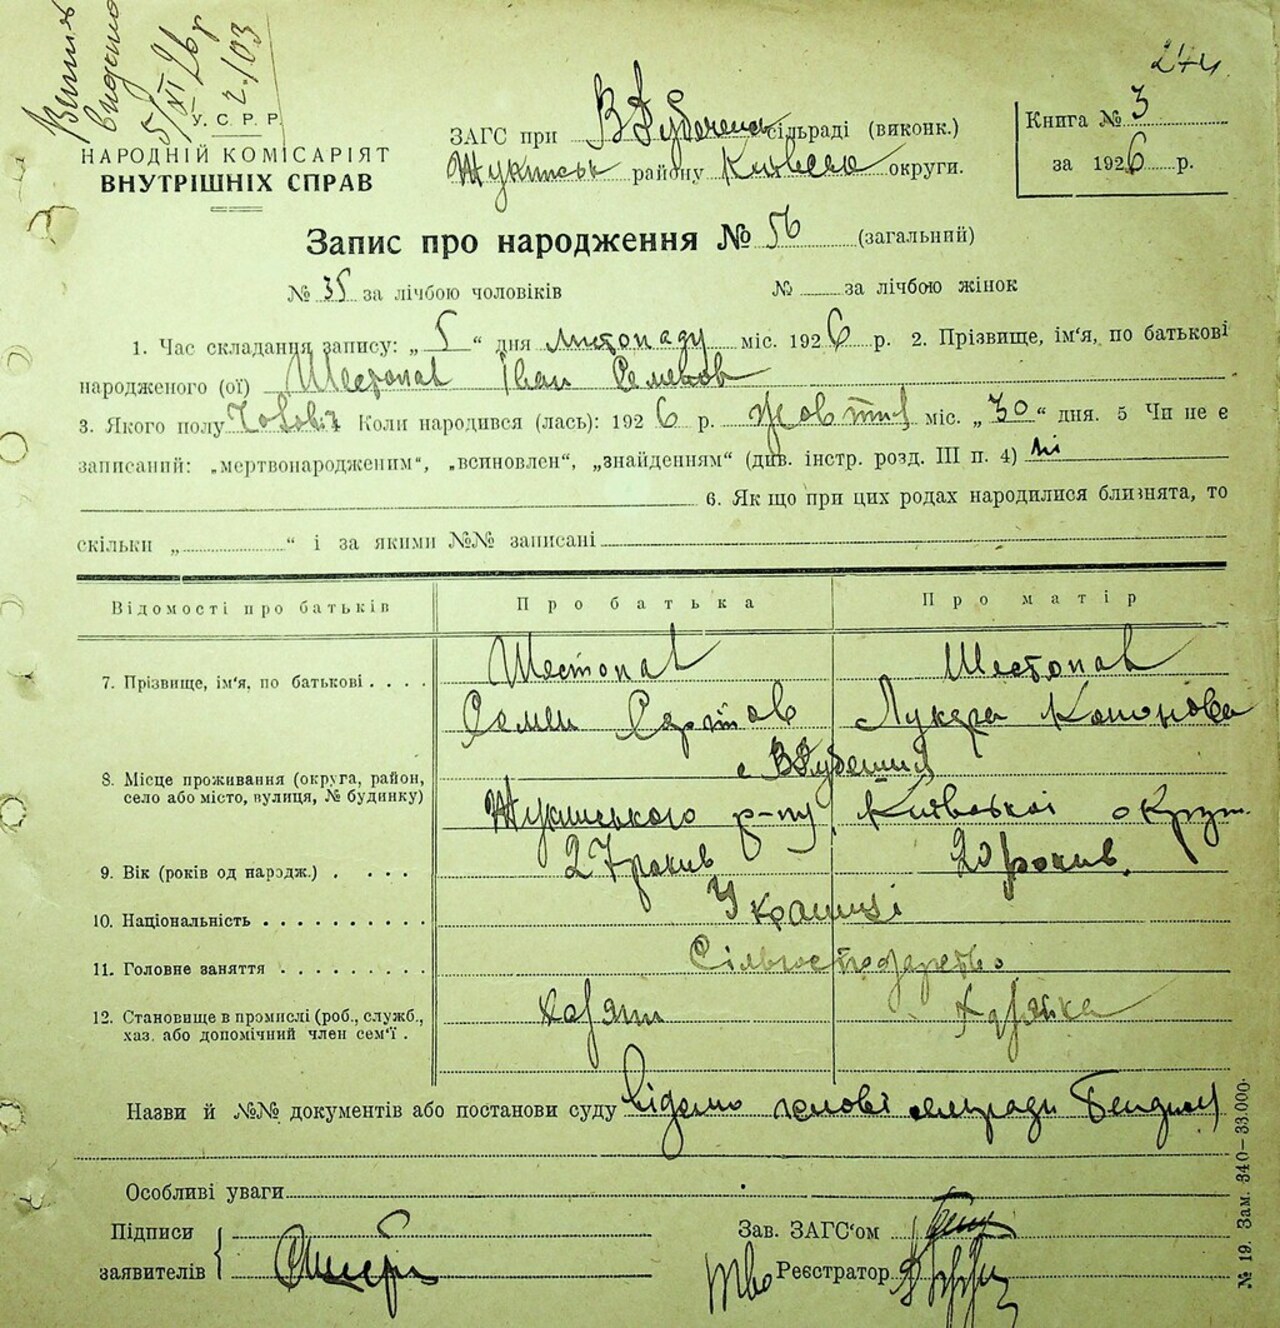 244
5/XI 26 р
2.103
У. С. Р. Р.
НАРОДНІЙ КОМІСАРІЯТ
ВНУТРІШНІХ СПРАВ
ЗАГС при сільраді (виконк.)
району округи.
Книга № 3
за 1926 р.
Запис про народження № 56 (загальний)
№ 35 за лічбою чоловіків № за лічбою жінок
1. Час складання запису: „ 5 “ дня листопаду міс. 1926 р. 2. Прізвище, ім'я, по батькові
народженого (ої) Шестопал Іван Семенов
3. Якого полу Коли народився (лась): 1926 р. міс. „ 30 “ дня. 5 Чи не е
записаний: „мертвонародженим“, „всиновлен“, „знайденням“ (див. інстр. розд. III п. 4) ні
6. Як що при цих родах народилися близнята, то
скільки „ “ і за якими №№ записані
Відомості про батьків Про батька Про матір
7. Прізвище, ім'я, по батькові . . . . Шестопал Шестопал
Семен Лукера Кононова
8. Місце проживання (округа, район,
село або місто, вулиця, № будинку)
р-ну Київської округи
9. Вік (років од народж.) . . . . 27 років 20 років.
10. Національність . . . . . . . . . . Українці
11. Головне заняття . . . . . . . . . Сільгосподарство
12. Становище в промислі (роб., служб.,
хаз. або допомічний член сем'ї . хазяїн хазяйка
Назви й №№ документів або постанови суду Відомо голові сельради
Особливі уваги
Підписи
заявителів
Зав. ЗАГС'ом
Реєстратор
№ 19. Зам. 340—33.000.